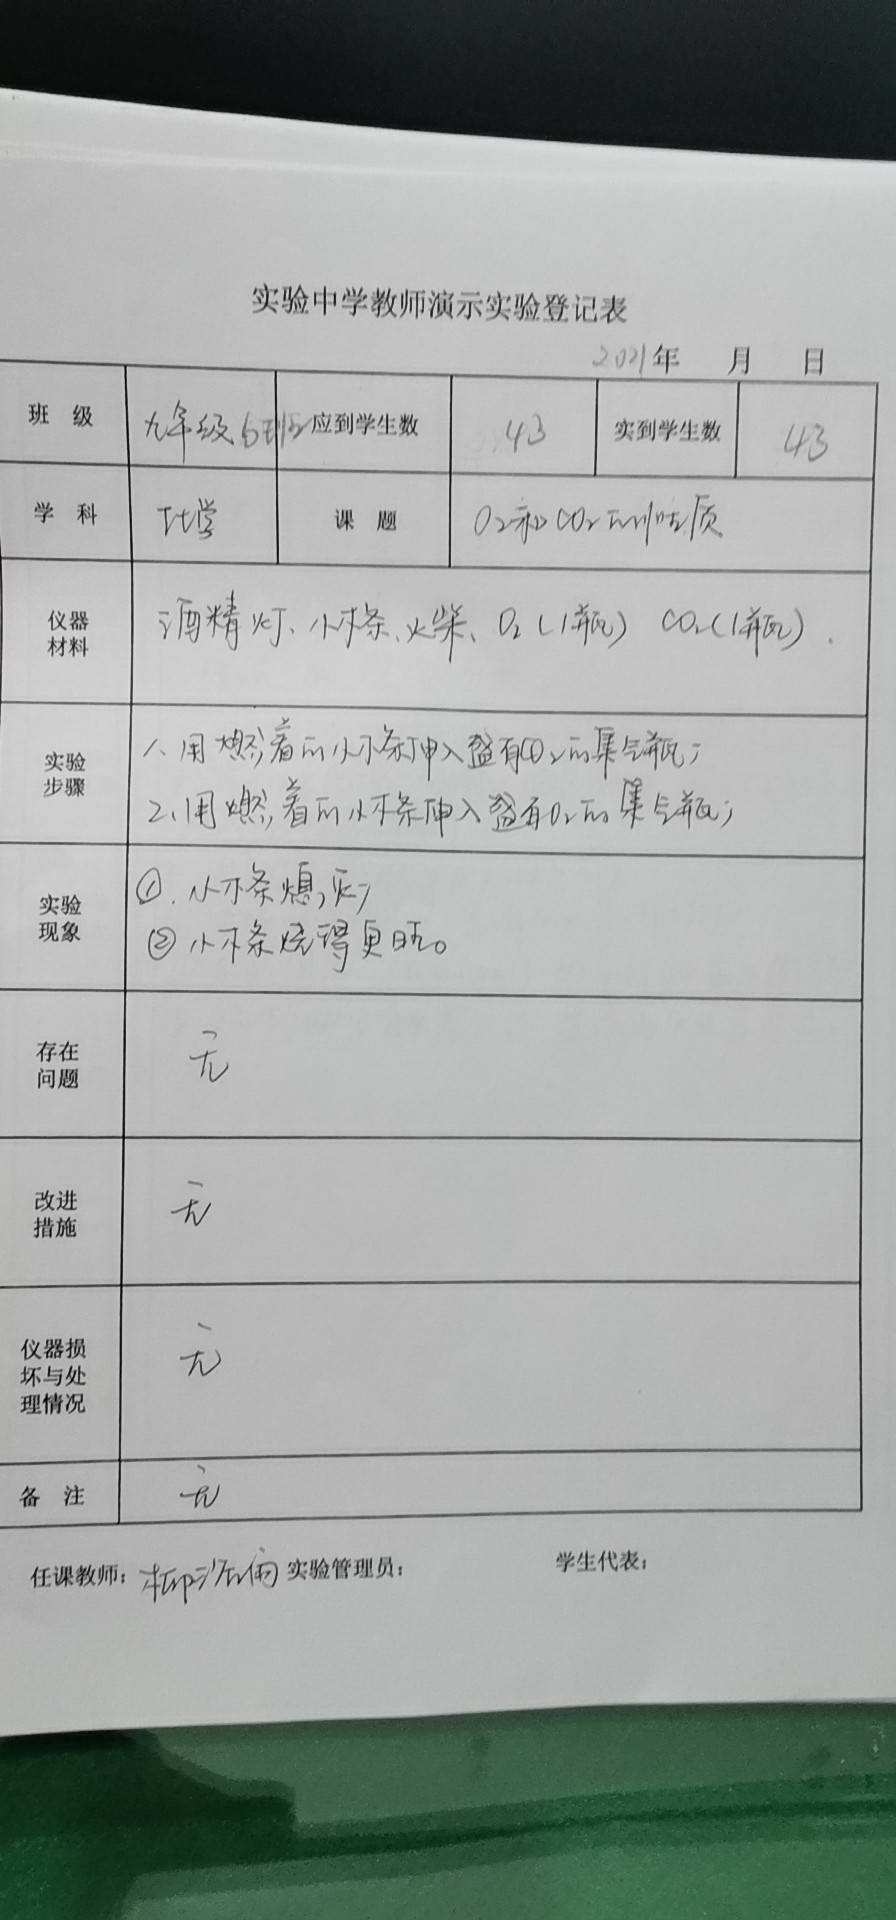 实验中学教师演示实验登记表
2021年 月 日
班 级 九年级6班 应到学生数 43 实到学生数 43
学 科 化学 课 题 O₂和CO₂的性质
仪器
材料
酒精灯、小木条、火柴、O₂(1瓶) CO₂(1瓶).
实验
步骤
1、用燃着的小木条伸入盛有CO₂的集气瓶;
2、用燃着的小木条伸入盛有O₂的集气瓶;
实验
现象
①.小木条熄灭;
②小木条烧得更旺。
存在
问题
无
改进
措施
无
仪器损
坏与处
理情况
无
备 注 无
任课教师: 柳 实验管理员: 学生代表: